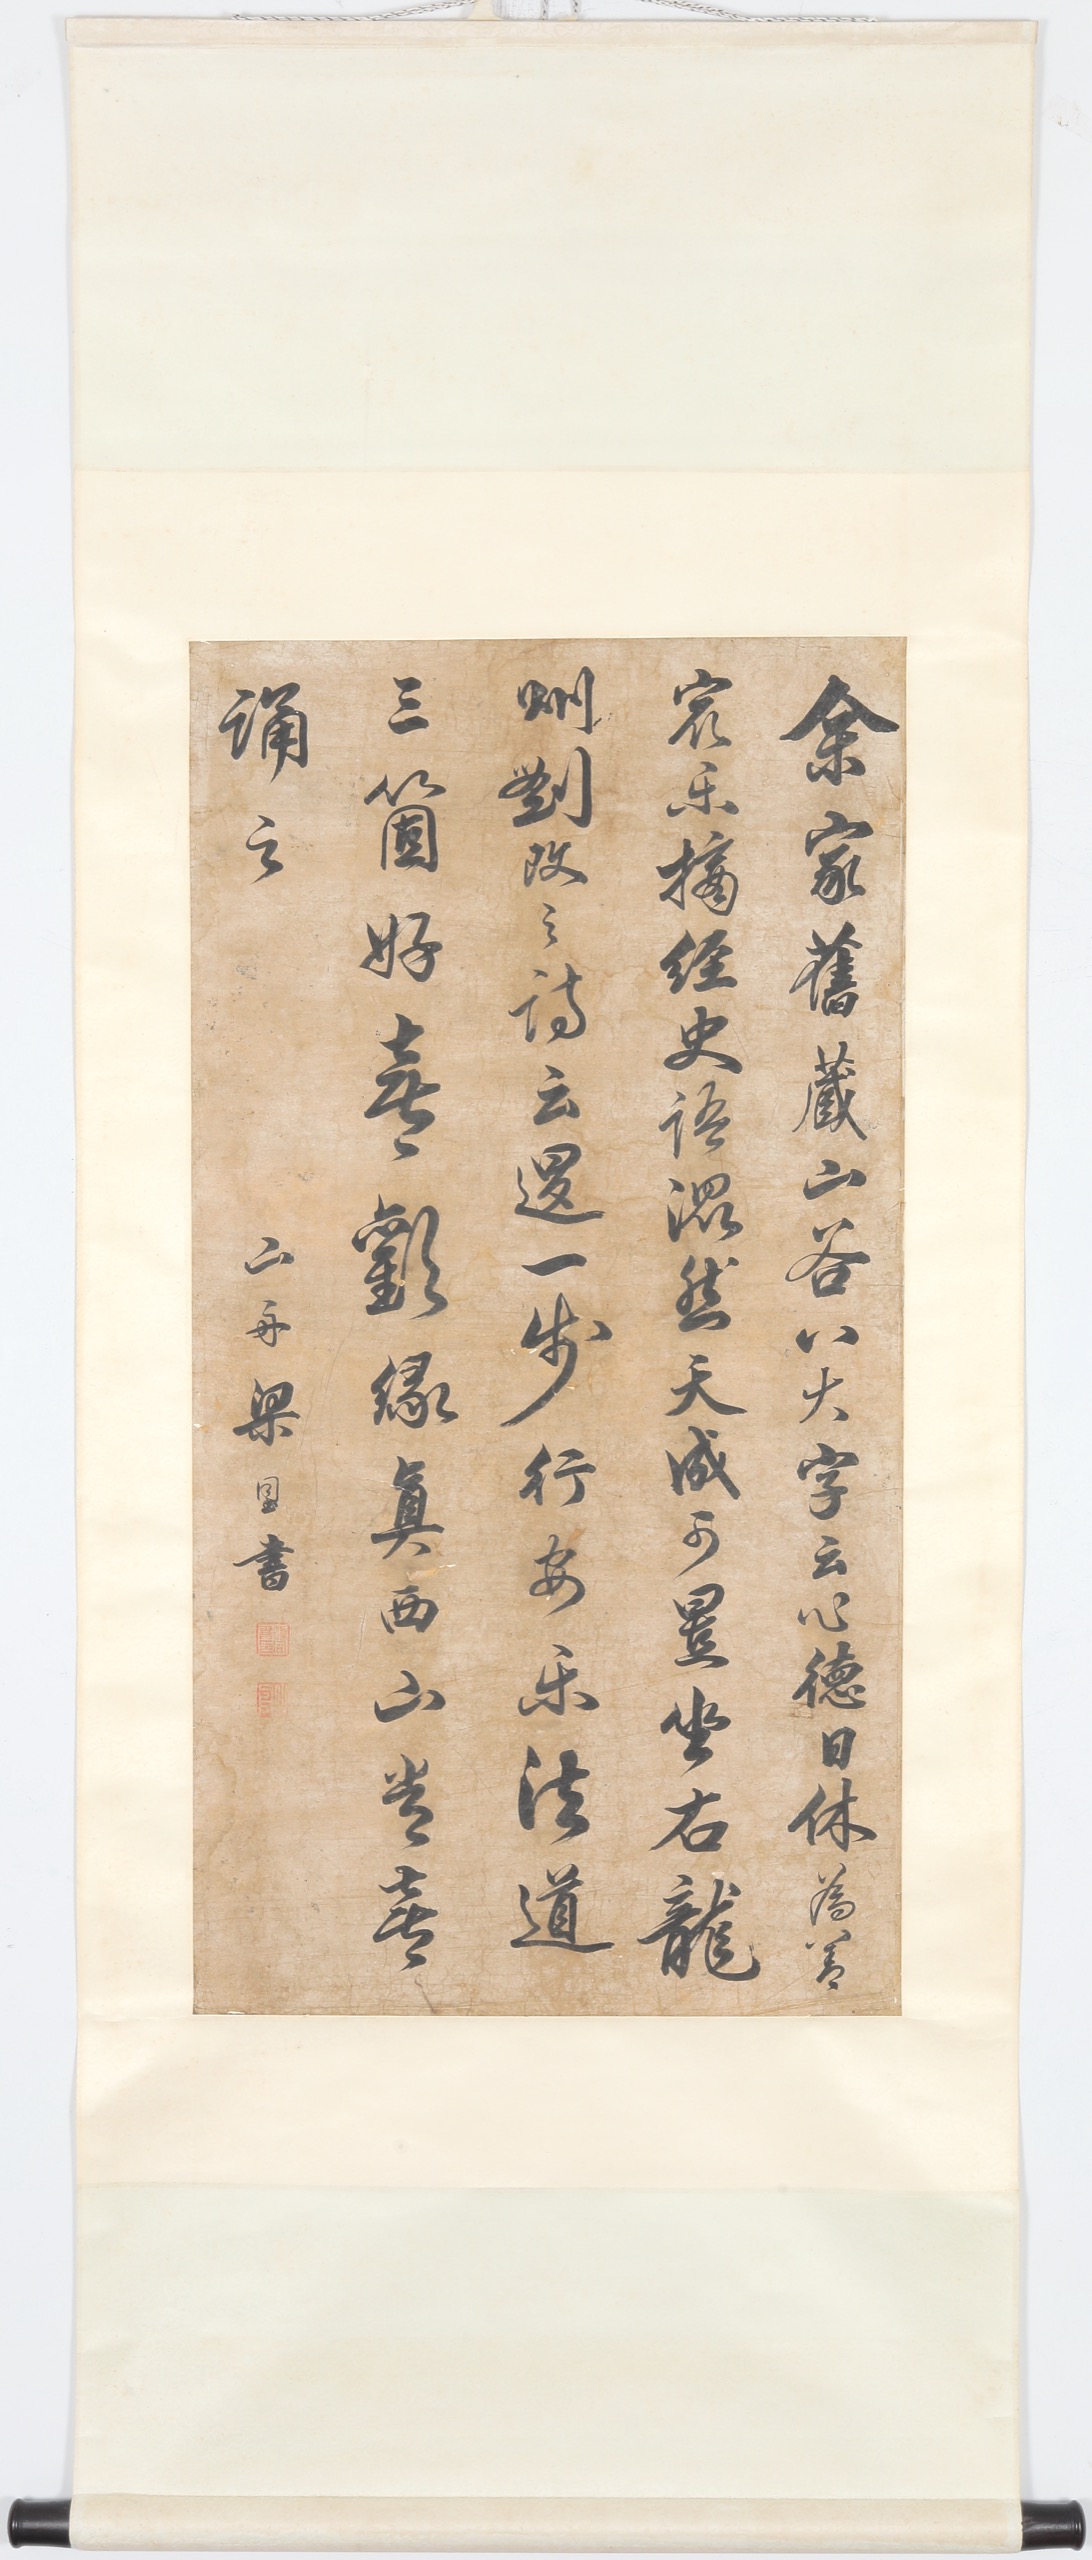 余家舊藏山谷八大字云心德日休為善
最乐摘經史語渾然天成可置坐右龍
洲劉改之詩云退一步行安乐法道
三箇好喜歡緣真西山常喜
誦之
山舟梁同書